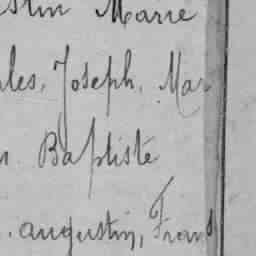 stin Marie
les, Joseph, Mar
n Baptiste
. augustin, Frans